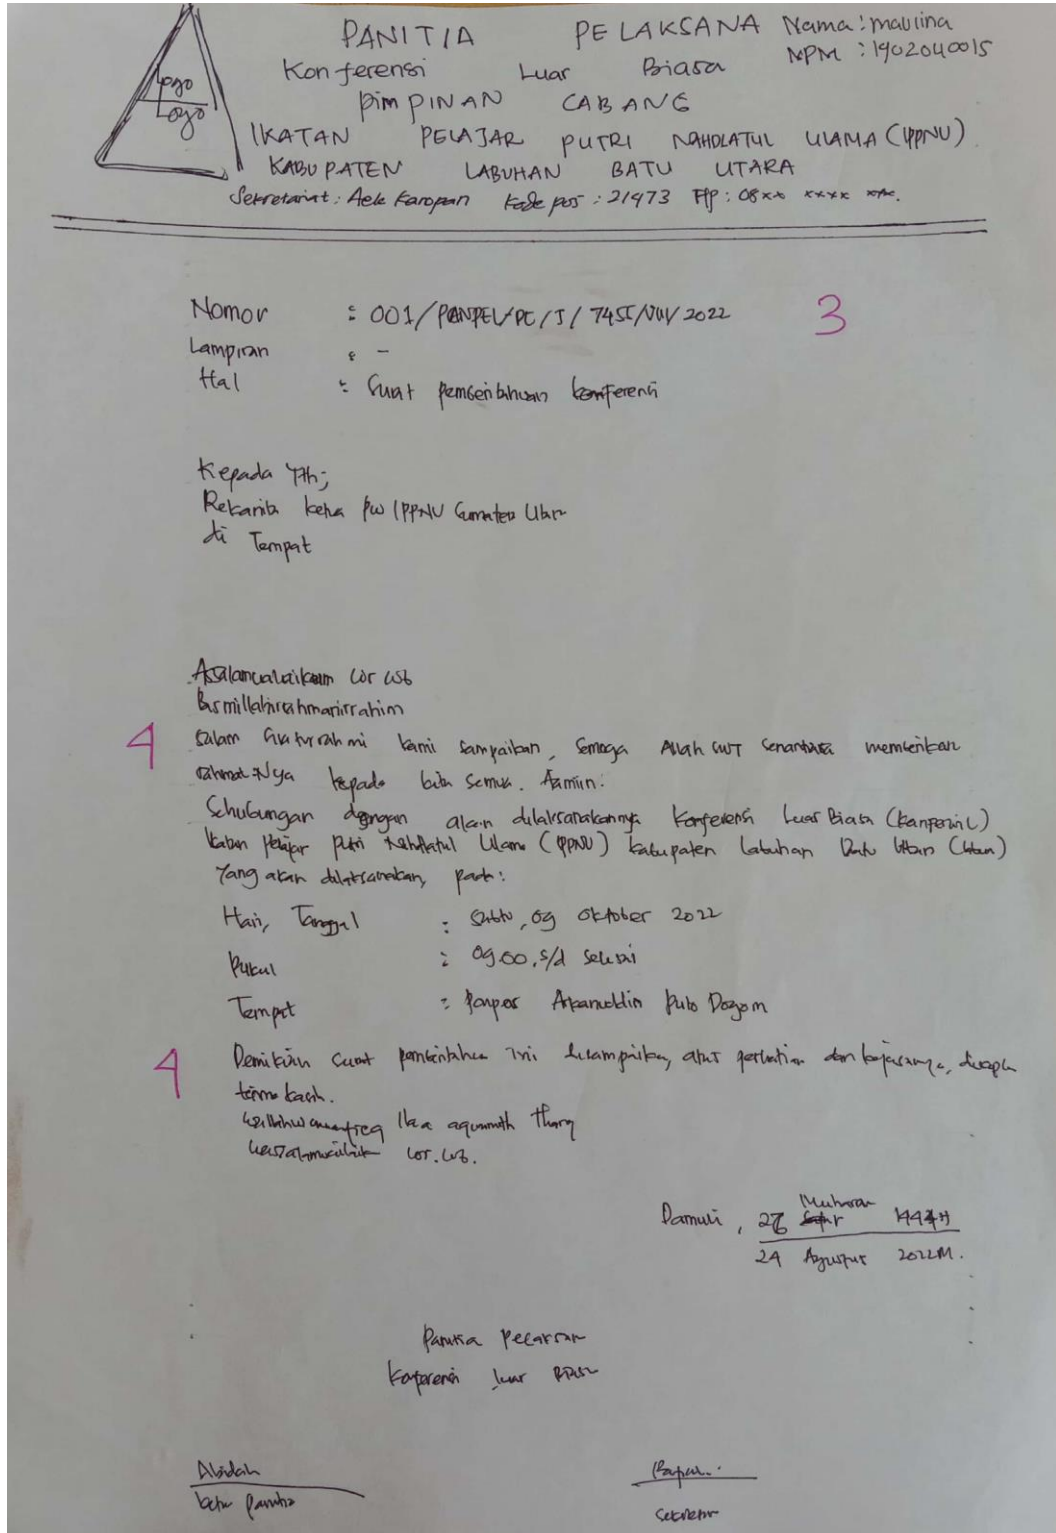 PANITIA PELAKSANA Nama : maulina
Konferensi Luar Biasa NPM : 1902040015
Logo
Logo
PIMPINAN CABANG
IKATAN PELAJAR PUTRI NAHDLATUL ULAMA (IPPNU)
KABUPATEN LABUHAN BATU UTARA
Sekretariat : Aek Kanopan Kode pos : 21473 Tlp : 08xx xxxx xxx.
Nomor : 001/PANPEL/PC/J/7455/VIII/2022 3
Lampiran : -
Hal : Surat pemberitahuan konferensi
Kepada Yth;
Rekanita ketua PW IPPNU Sumatera Utara
di Tempat
Assalamualaikum wr wb
Bismillahirrahmanirrahim
4 Salam silaturrahmi kami sampaikan, semoga Allah SWT senantiasa memberikan
rahmat-Nya kepada kita semua. Aamiin.
Sehubungan dengan akan dilaksanakannya Konferensi Luar Biasa
Ikatan Pelajar Putri Nahdlatul Ulama (IPPNU) kabupaten Labuhan Batu Utara
Yang akan dilaksanakan, pada :
Hari, Tanggal : Sabtu, 09 Oktober 2022
Pukul : 09.00, s/d selesai
Tempat : Ponpes Pulo Dogom
4 Demikian surat pemberitahuan ini disampaikan, atas perhatian dan kerjasamanya, diucapkan
terima kasih.
wr. wb.
Damuli, Muharam
24 Agustus 2022 M.
Panitia Pelaksana
Konferensi Luar Biasa
Abidah
ketua panitia
sekretaris